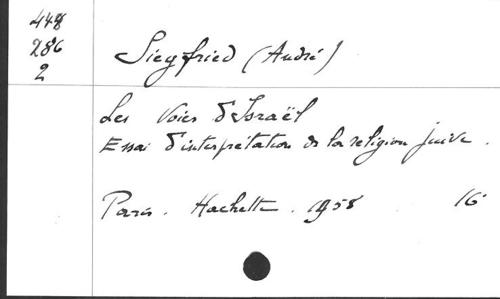 448
286
2
Siegfried (André)
Les Voies d'Israël
Essai d'interprétation de la religion juive.
Paris. Hachette. 1958 16